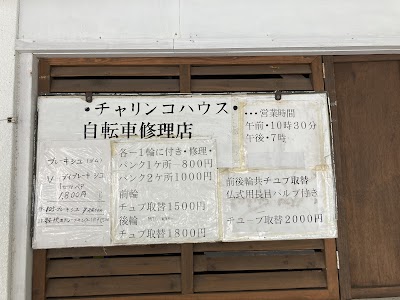 ・チャリンコハウス・
自転車修理店
・・・営業時間
午前・10時30分
午後・7時
各一1輪に付き・修理・
パンク1ケ所ー800円
パンク2ケ所1000円
前輪
チュブ取替1500円
後輪
チュブ取替1800円
前後輪共チュブ取替
仏式用長目バルブ付き
チューブ取替2000円
ブレーキシュ
V
1,800円